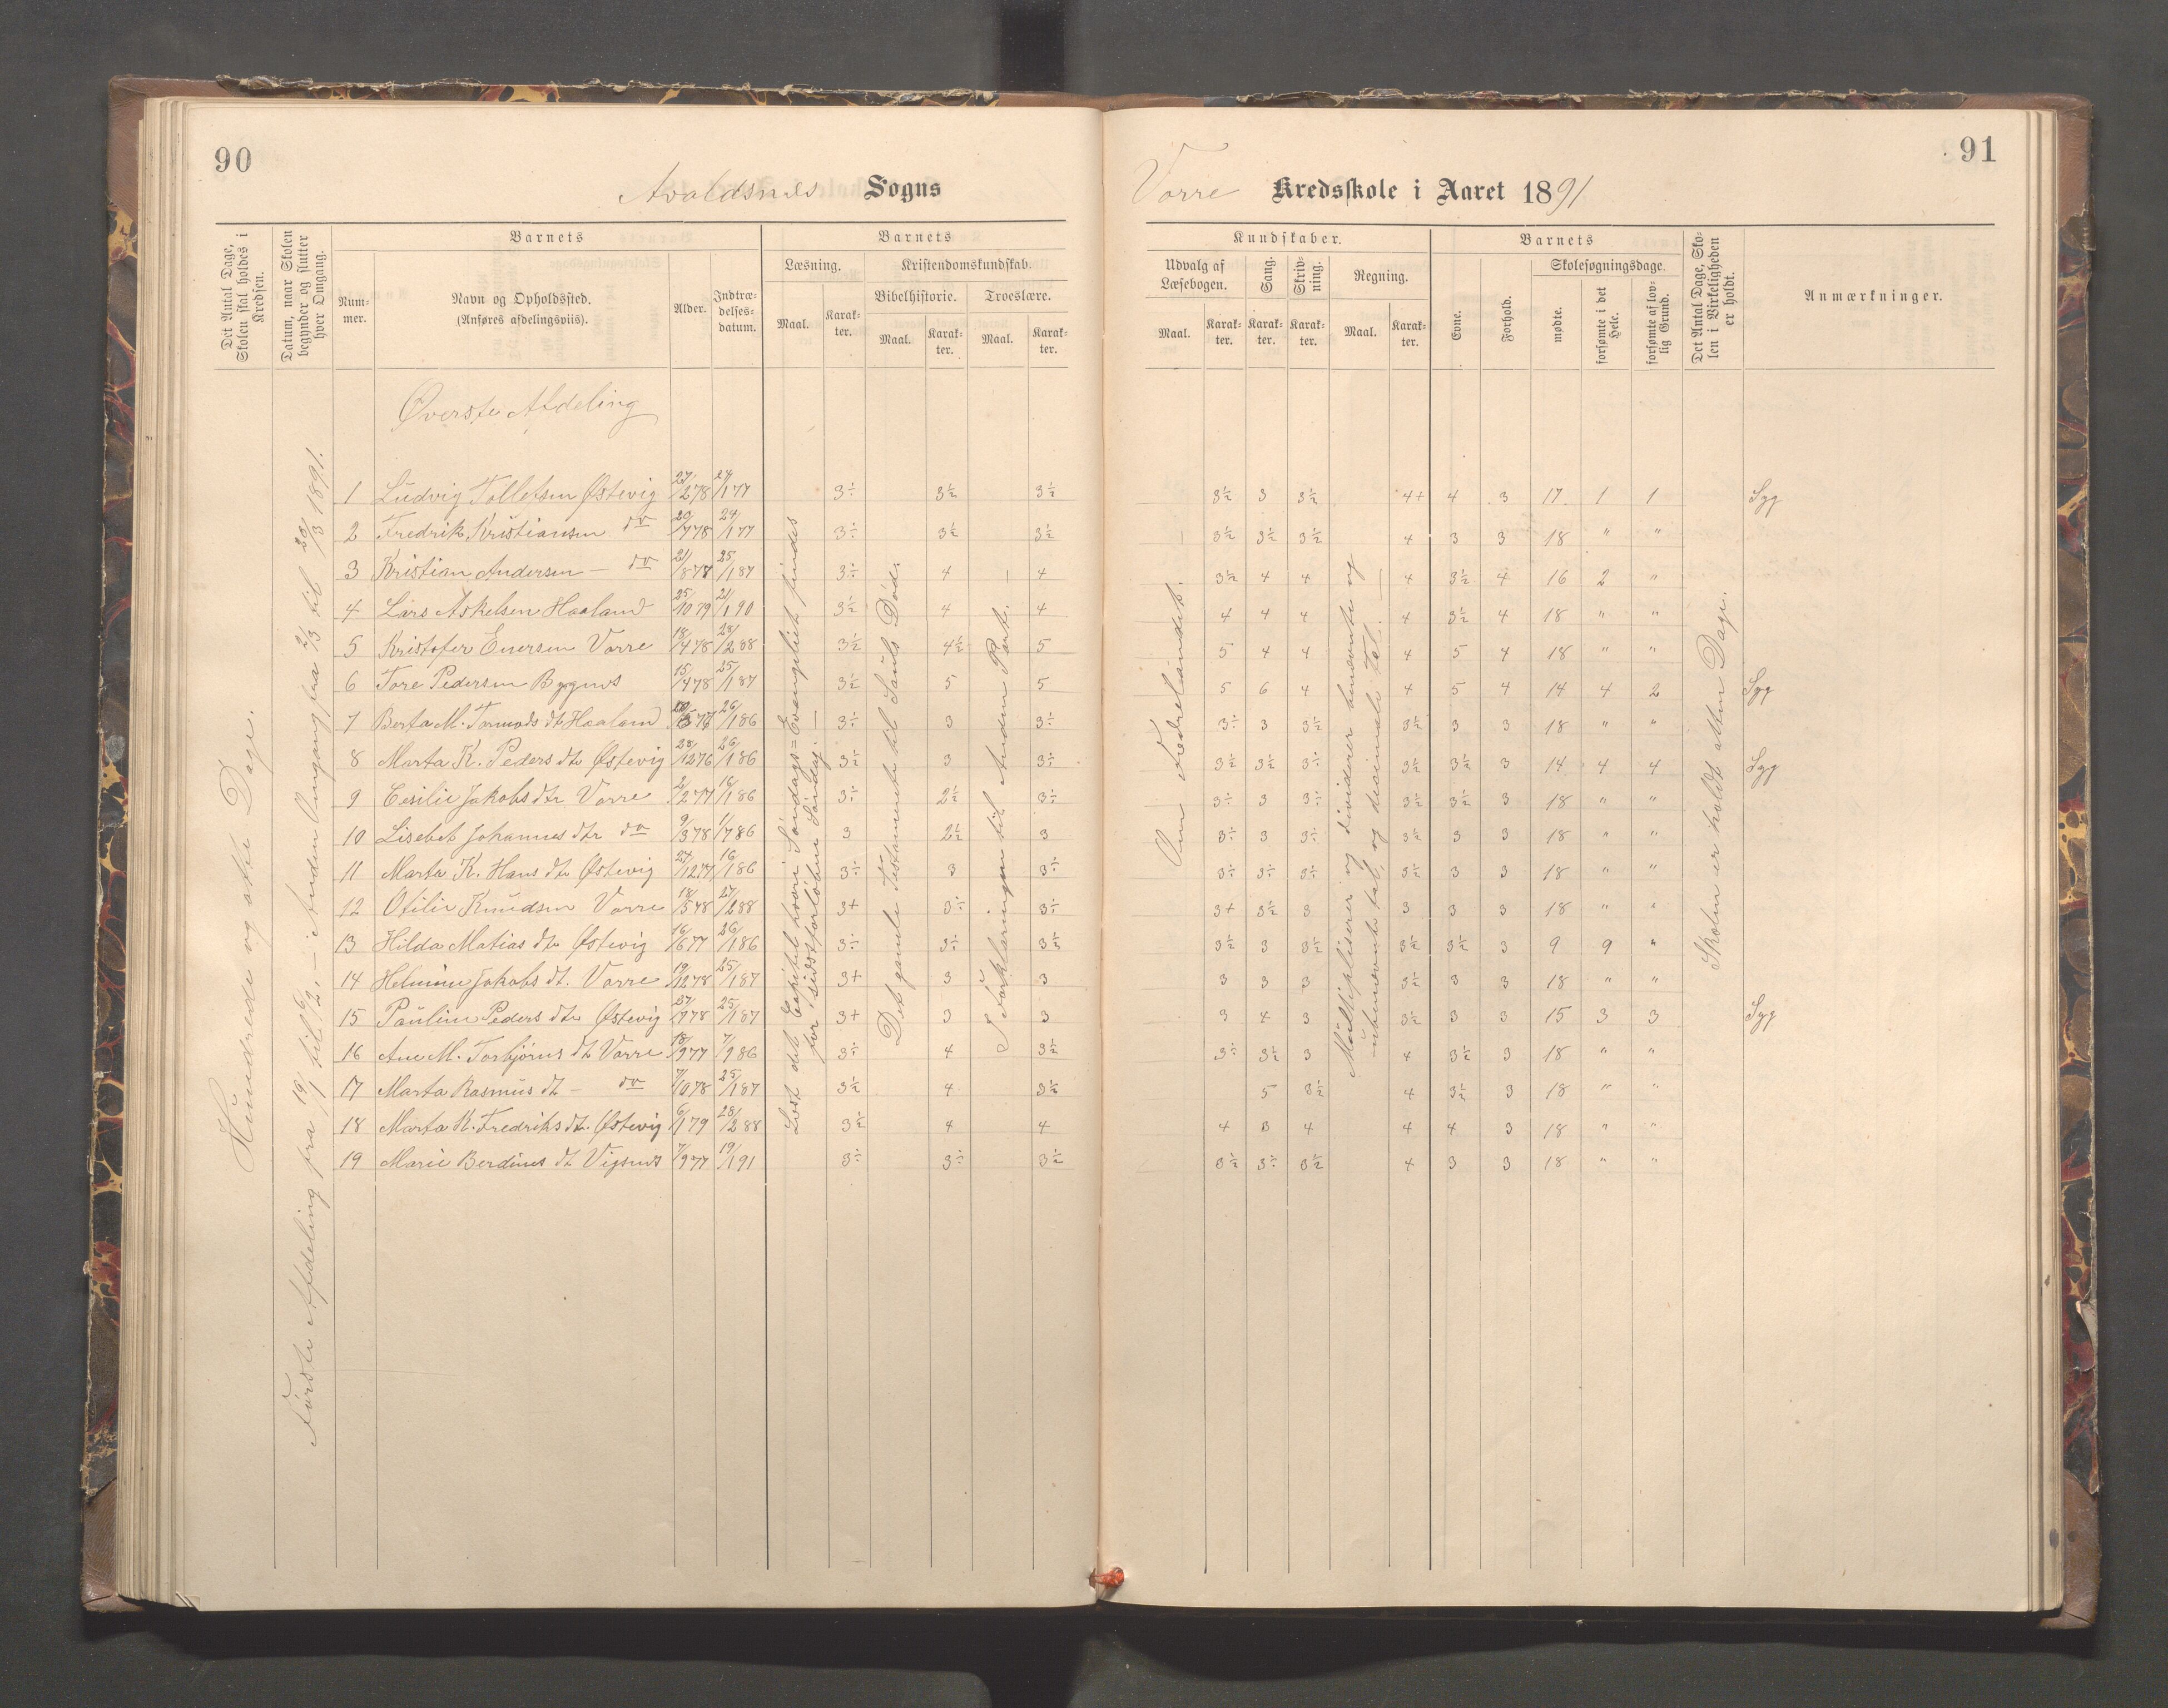 90
Avaldsnes Sogns
Det Antal Dage, Skolen skal holdes i Kredsen.
Datum, naar Skolen begynder og slutter hver Omgang.
Barnets
Num-mer.
Navn og Opholdssted.
(Anføres afdelingsviis).
Alder.
Indtræ-delses-datum.
Barnets
Læsning.
Maal.
Karak-ter.
Kristendomskundskab.
Bibelhistorie.
Maal.
Karak-ter.
Troeslære.
Maal.
Karak-ter.
Hundrede og otte Dage.
Første Afdeling fra 19/1 til 6/2, – Anden Omgang fra 2/3 til 20/3 1891.
Øverste Afdeling
1 Ludvig Tollefsen Østevig 27/2 78 24/1 77 3÷ 3½ 3½
2 Fredrik Kristiansen do 20/7 78 24/1 77 3÷ 3½ 3½
3 Kristian Andersen – do 21/8 78 25/1 87 3÷ 4 4
4 Lars Askelsen Haaland 25/10 79 21/1 90 3½ 4 4
5 Kristofer Enersen Vorre 18/4 78 28/2 88 3½ 4½ 5
6 Tore Pedersen Bygnes 15/4 78 25/1 87 3½ 5 5
7 Berta M. Tormods dt Haaland 26/1 86 3÷ 3 3÷
8 Marta K. Peders dtr Østevig 28/12 76 26/1 86 3½ 3 3÷
9 Cesilie Jakobs dtr Vorre 2/2 77 16/1 86 3÷ 2½ 3÷
10 Lisebet Johannes dtr do 9/3 78 1/7 86 3 2½ 3
11 Marta K. Hans dtr Østevig 27/12 77 16/1 86 3÷ 3 3÷
12 Otilie Knudsen Vorre 18/5 78 27/2 88 3+ 3÷ 3÷
13 Hilda Matias dtr Østevig 16/6 77 26/1 86 3÷ 3÷ 3½
14 Helmine Jakobs dt. Vorre 19/12 78 25/1 87 3+ 3 3
15 Pauline Peders dtr Østevig 27/9 78 25/1 87 3+ 3 3
16 Ane M. Torbjørns dt Vorre 18/9 77 7/9 86 3÷ 4 3½
17 Marta Rasmus dt – do 7/10 78 25/1 87 3½ 4 3½
18 Marta K. Fredriks dt. Østevig 6/1 79 28/2 88 3½ 4 4
19 Marie Berdines dt Vigsnes 7/9 77 19/1 91 3÷ 3÷ 3½
Læst det Capitel hvori Søndags=Evangeliet findes
for sidstforløbne Søndag.
Det gamle Testamente til Sauls Død.
I Forklaringen til Anden Part.
91
Vorre Kredsskole i Aaret 1891
Kundskaber.
Udvalg af Læsebogen.
Maal.
Karak-ter.
Sang.
Karak-ter.
Skriv-ning.
Karak-ter.
Regning.
Maal.
Karak-ter.
Barnets
Evne.
Forhold.
Skolesøgningsdage.
mødte.
forsømte i det Hele.
forsømte af lov-lig Grund.
Det Antal Dage, Sko-len i Virkeligheden er holdt.
Anmærkninger.
3½ 3 3½ 4+ 4 3 17 1 1 Syg
3½ 3½ 3½ 4 3 3 18 " "
3½ 4 4 4 3½ 4 16 2 "
4 4 4 4 3½ 4 18 " "
5 4 4 4 5 4 18 " "
5 6 4 4 5 4 14 4 2 Syg
3÷ 3 3½ 3½ 3 3 18 " "
3½ 3½ 3÷ 3½ 3½ 3 14 4 4 Syg
3÷ 3 3÷ 3½ 3½ 3 18 " "
3÷ 3 3÷ 3½ 3 3 18 " "
3÷ 3÷ 3÷ 3½ 3 3 18 " "
3+ 3½ 3 3 3 3 18 " "
3½ 3 3½ 3½ 3½ 3 9 9 "
3 3 3 3½ 3 3 18 " "
3 4 3 3½ 3 3 15 3 3 Syg
3÷ 3½ 3 4 3½ 3 18 " "
5 3½ 4 3½ 3 18 " "
4 3 4 4 4 3 18 " "
3½ 3÷ 3½ 4 3 3 18 " "
Om Fædrelandet.
Multipliserer og dividerer benævnte og
ubenævnte tal, og desimale Tal.
Skolen er holdt atten Dage.